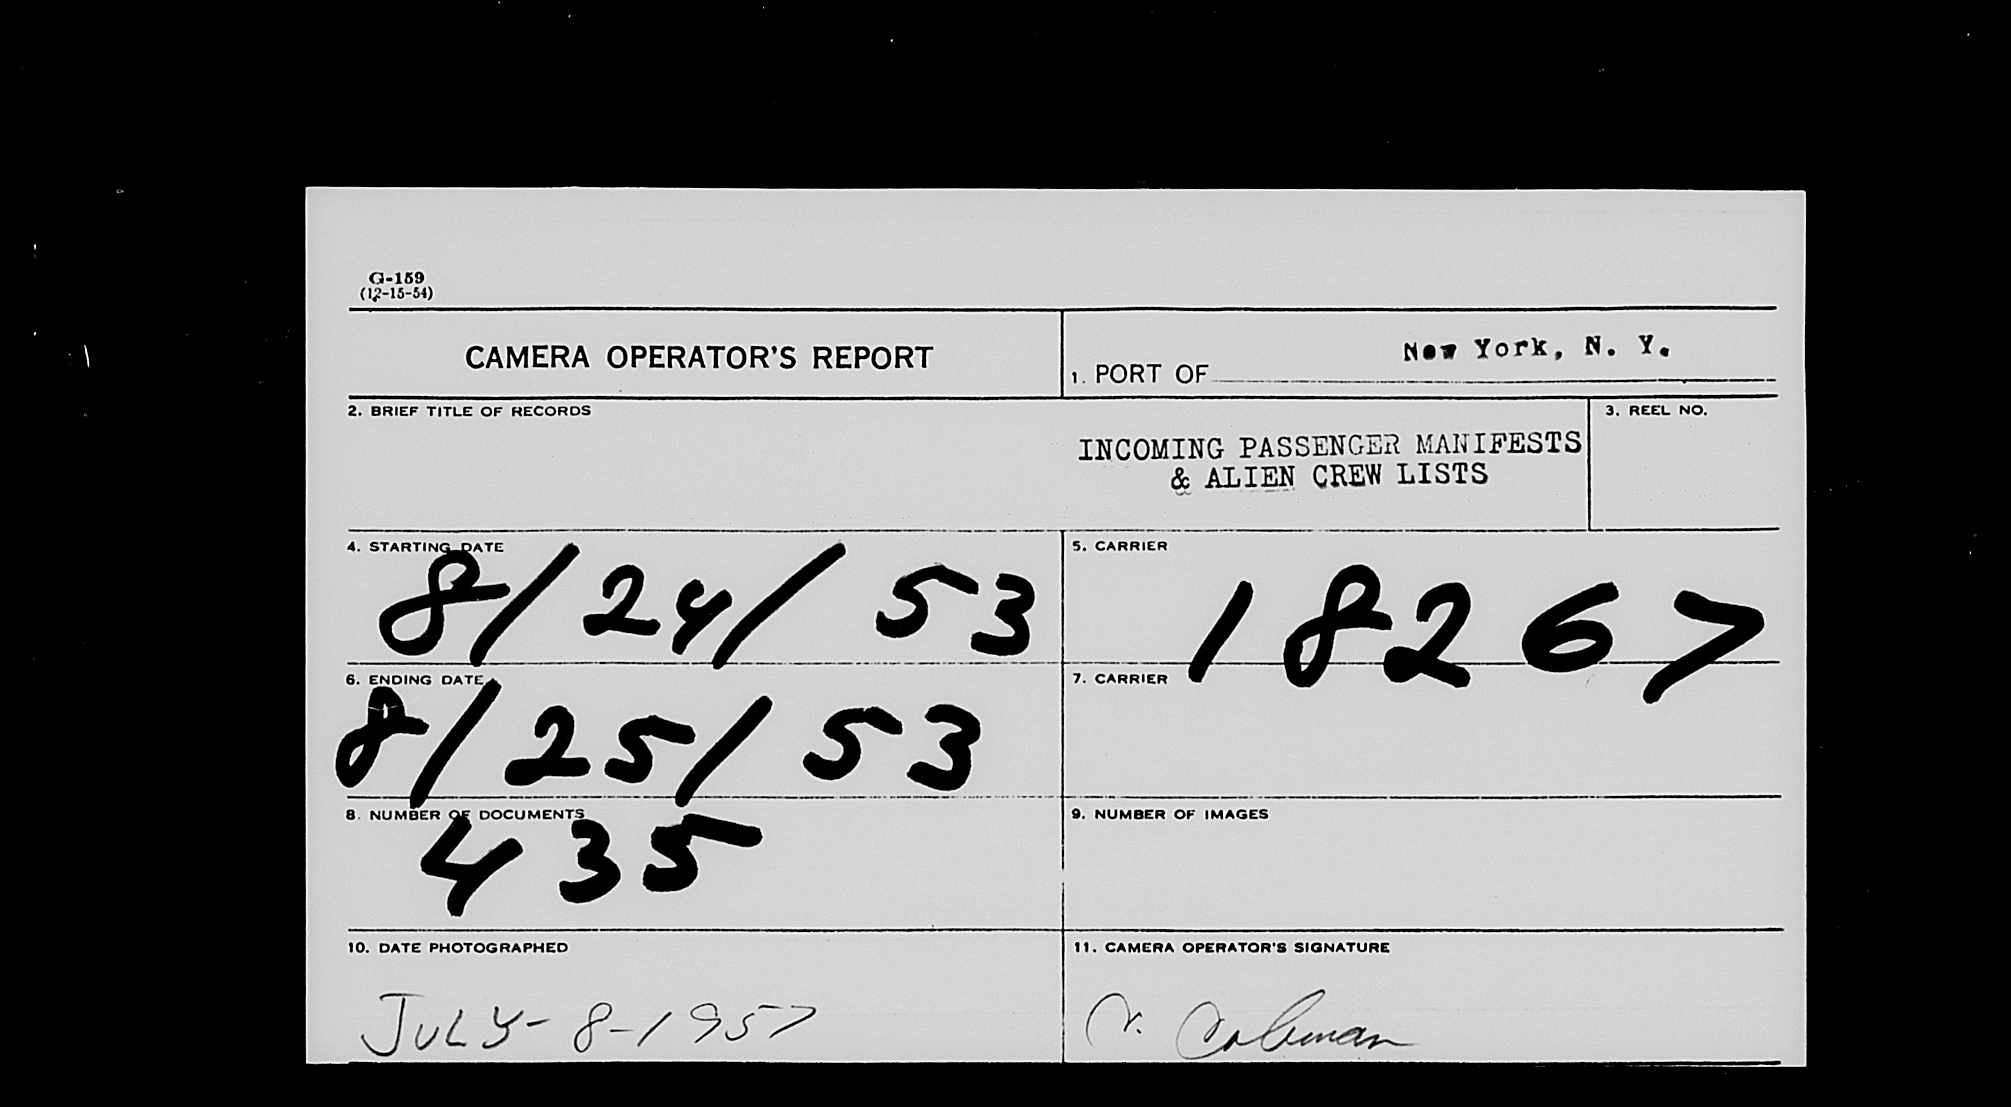 G-159
(12-15-54)
CAMERA OPERATOR'S REPORT
1. PORT OF New York, N. Y.
2. BRIEF TITLE OF RECORDS
INCOMING PASSENGER MANIFESTS
& ALIEN CREW LISTS
3. REEL NO.
4. STARTING DATE
8/24/53
5. CARRIER
18267
6. ENDING DATE
8/25/53
7. CARRIER
8. NUMBER OF DOCUMENTS
435
9. NUMBER OF IMAGES
10. DATE PHOTOGRAPHED
JULY-8-1957
11. CAMERA OPERATOR'S SIGNATURE
Coleman